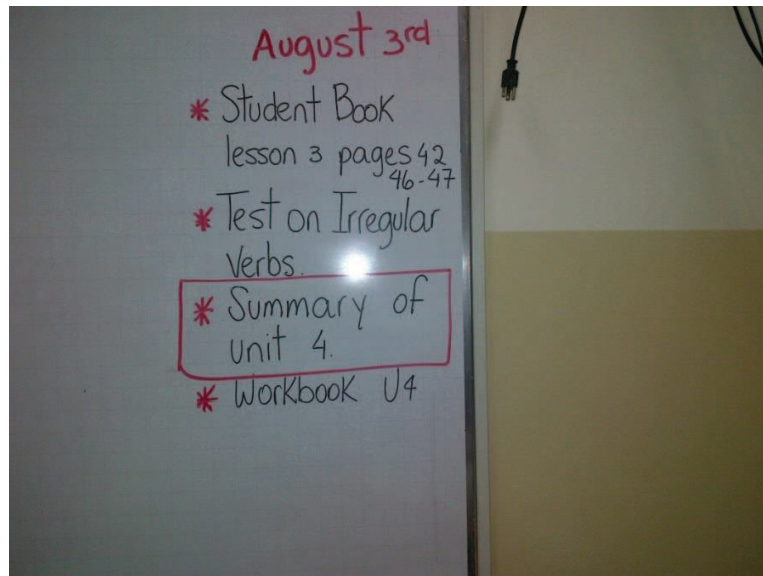 August 3rd
* Student Book
lesson 3 pages 42
46-47
* Test on Irregular
Verbs.
* Summary of
unit 4.
* Workbook U4